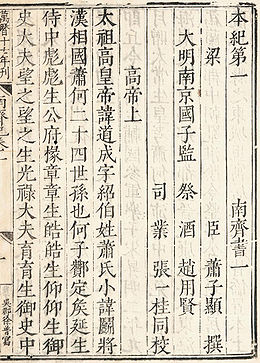 本紀第一　南齊書一
梁　臣蕭子顯撰
大明南京國子監祭酒趙用賢
司業張一桂同校
高帝上
太祖高皇帝諱道成字紹伯姓蕭氏小諱鬬將
漢相國蕭何二十四世孫也何子酇定矦延生
侍中彪彪生公府掾章章生皓皓生仰仰生御
史大夫望之望之生光祿大夫育育生御史中
萬曆十六年刊